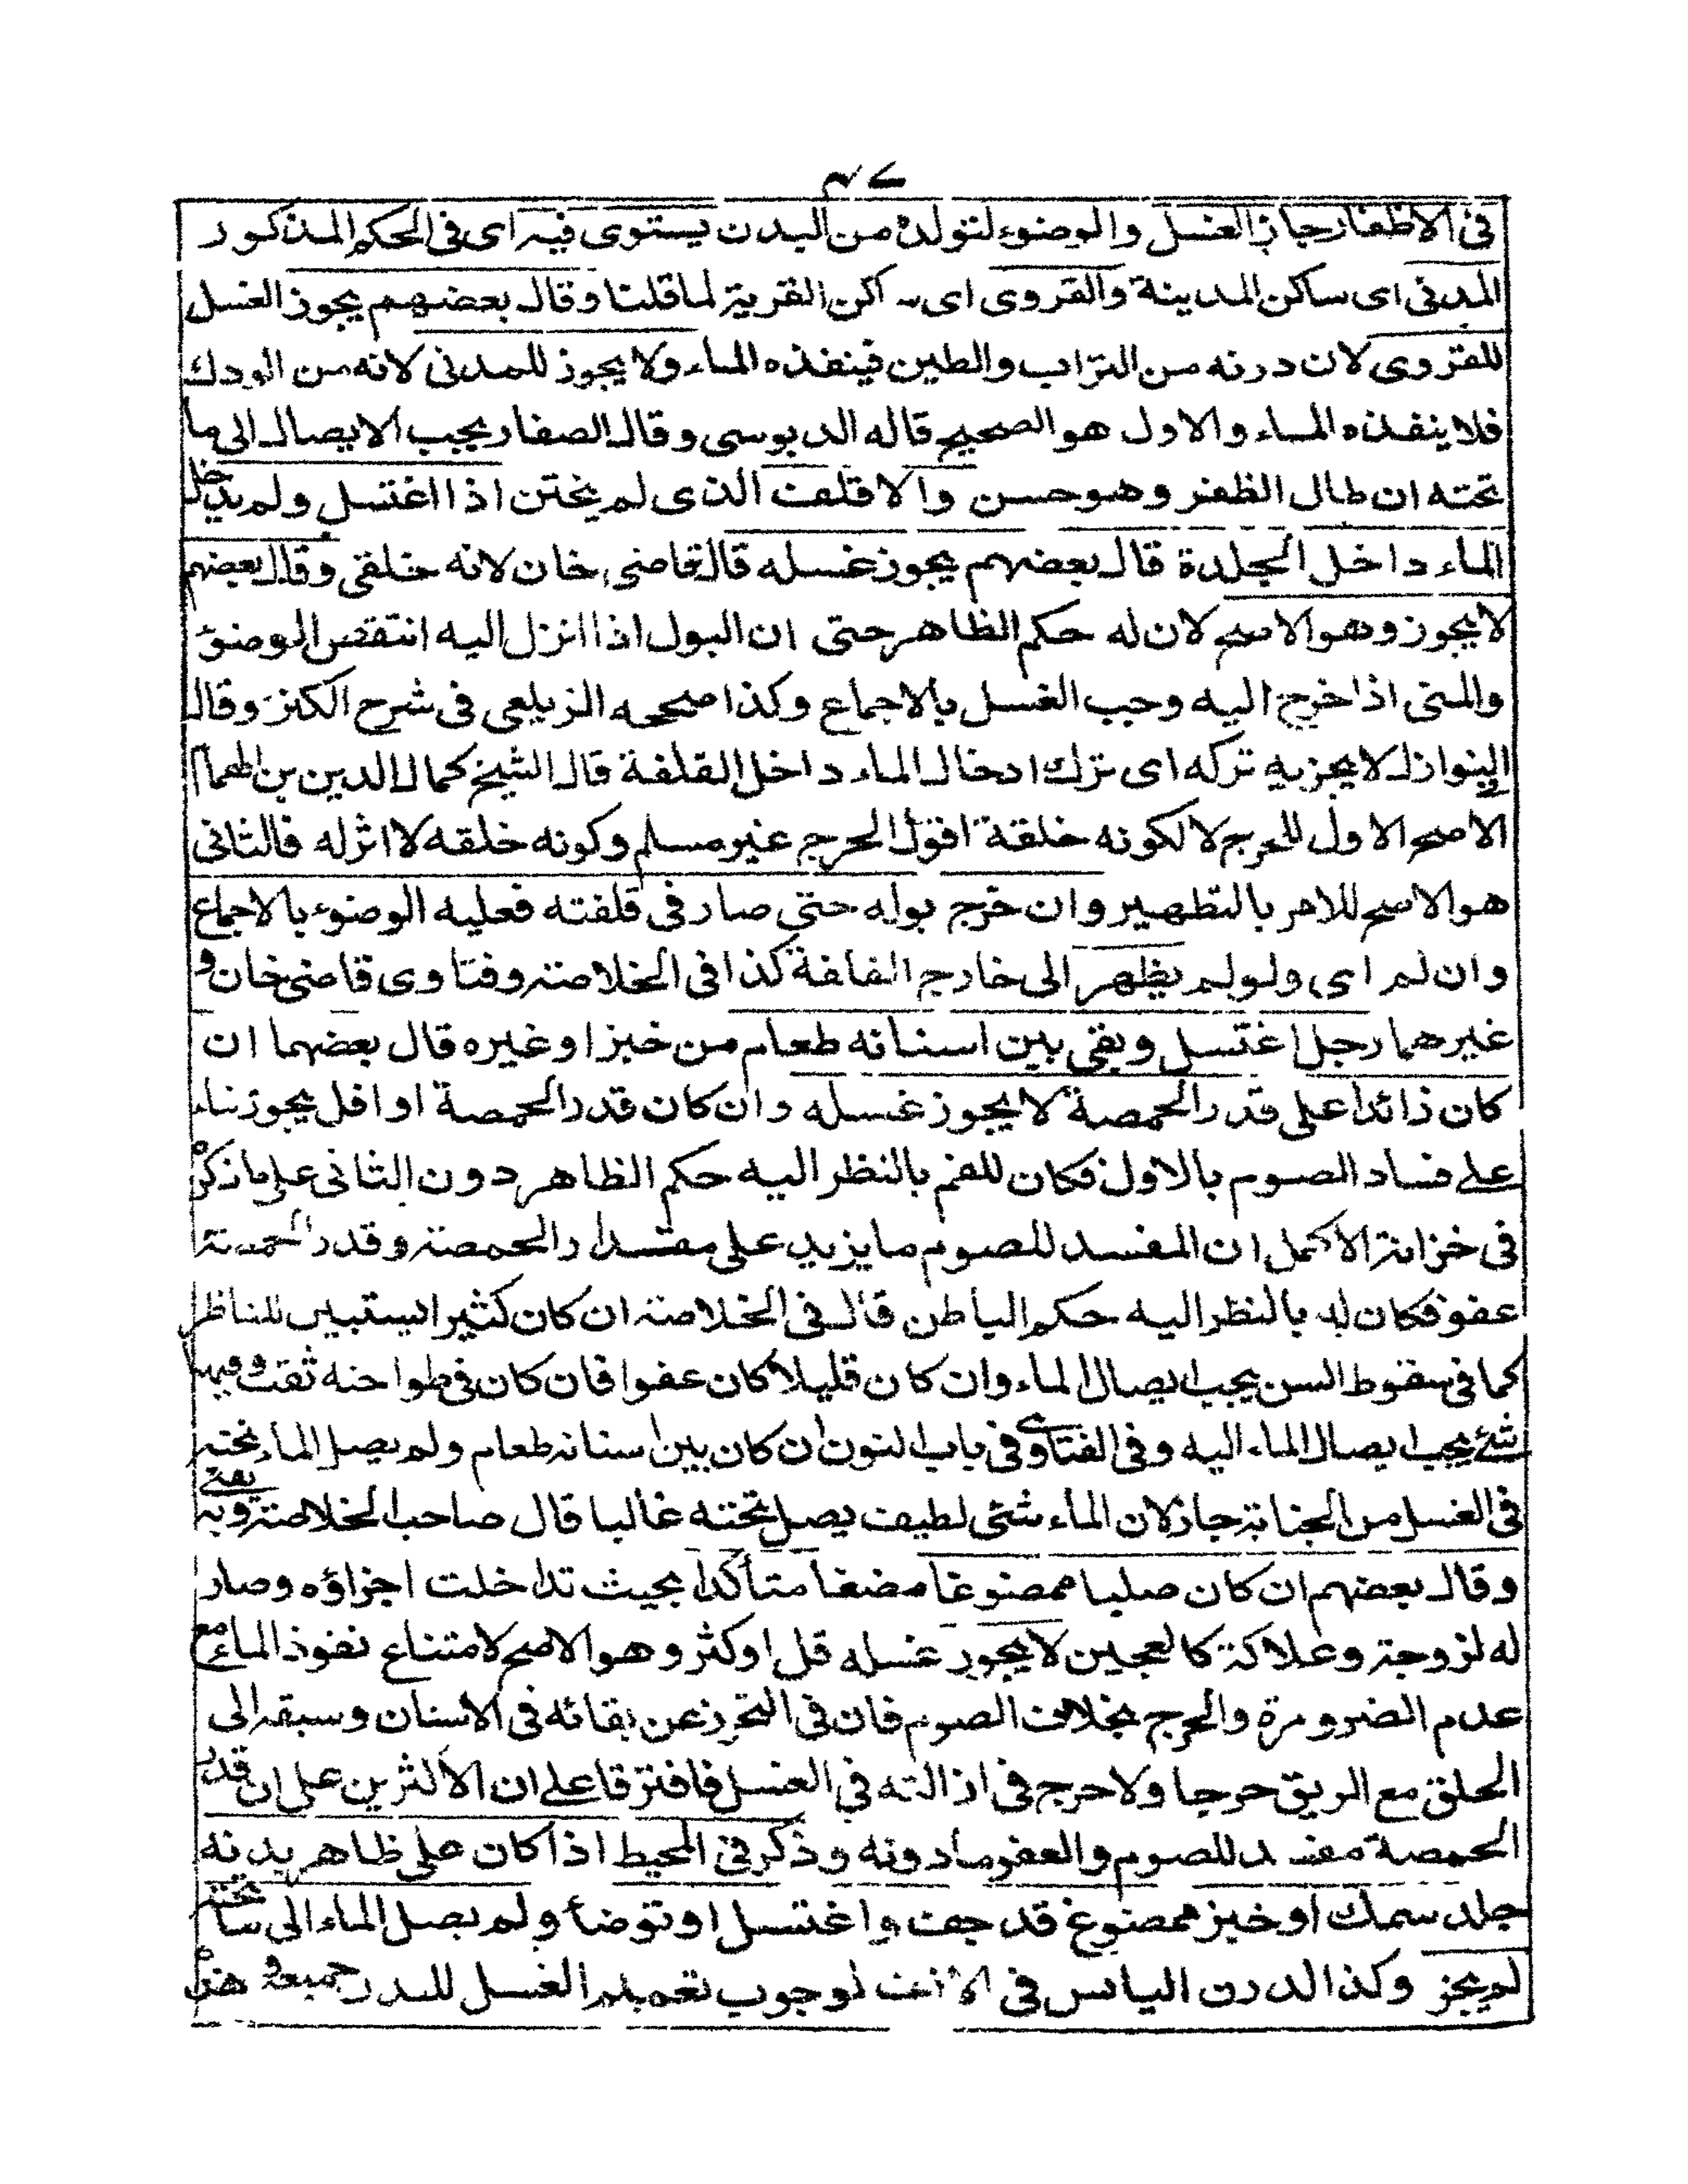 ٤٧
فى الاظفار جاز الغسل والوضوء لتولده من البدن يستوى فيه اى فى الحكم المذكور
المدنى اى ساكن المدينة والقروى اى ساكن القرية لما قلنا وقال بعضهم يجوز الغسل
للقروى لان درنه من التراب والطين فينفذه الماء ولا يجوز للمدنى لانه من الودك
فلا ينفذه الماء والاول هو الصحيح قاله الدبوسى وقال الصفار يجب الايصال الى ما
تحته ان طال الظفر وهو حسن والاقلف الذى لم يختن اذا اغتسل ولم يدخل
الماء داخل الجلدة قال بعضهم يجوز غسله قال قاضى خان لانه خلقى وقال بعضهم
لا يجوز وهو الاصح لان له حكم الظاهر حتى ان البول اذا انزل اليه انتقض الوضوء
والمنى اذا خرج اليه وجب الغسل بالاجماع وكذا صححه الزيلعى فى شرح الكنز وقال
النوازل لا يجزيه تركه اى ترك ادخال الماء داخل القلفة قال الشيخ كمال الدين بن الهمام
الاصح الاول للحرج لا لكونه خلقة اقول الحرج غير مسلم وكونه خلقه لا اثر له فالثانى
هو الاصح للامر بالتطهير وان خرج بوله حتى صار فى قلفته فعليه الوضوء بالاجماع
وان لم اى ولو لم يظهر الى خارج القلفة كذا فى الخلاصة وفتاوى قاضى خان و
غيرهما رجل اغتسل وبقى بين اسنانه طعام من خبز او غيره قال بعضهما ان
كان زائدا على قدر الحمصة لا يجوز غسله وان كان قدر الحمصة او اقل يجوز بناء
على فساد الصوم بالاول فكان للفم بالنظر اليه حكم الظاهر دون الثانى على ما ذكره
فى خزانة الاكمل ان المفسد للصوم ما يزيد على مقدار الحمصة وقدر الحمصة
عفو فكان له بالنظر اليه حكم الباطن قال فى الخلاصة ان كان كثيرا يستبين للناظر
كما فى سقوط السن يجب ايصال الماء وان كان قليلا كان عفوا فان كان فى طواحنه ثقب وفيها
شئ يجب ايصال الماء اليه وفى الفتاوى فى باب النون ان كان بين اسنانه طعام ولم يصل الماء تحته
فى الغسل من الجنابة جاز لان الماء شئ لطيف يصل تحته غالبا قال صاحب الخلاصة وبه يفتى
وقال بعضهم ان كان صلبا ممضوغا مضغا متأكدا بحيث تداخلت اجزاؤه وصار
له لزوجة وعلاكة كالعجين لا يجوز غسله قل او كثر وهو الاصح لامتناع نفوذ الماء مع
عدم الضرورة والحرج بخلاف الصوم فان فى التحرز عن بقائه فى الاسنان وسبقه الى
الحلق مع الريق حرجا ولا حرج فى ازالته فى الغسل فافترقا على ان الاكثرين على ان قدر
الحمصة مفسد للصوم والعفو مادونه وذكر فى المحيط اذا كان على ظاهر بدنه
جلد سمك او خبز ممضوغ قد جف واغتسل او توضأ ولم يصل الماء الى ما تحته
لم يجز وكذا الدرن اليابس فى الانف لوجوب تعميم الغسل للبدن جميعه و هذه